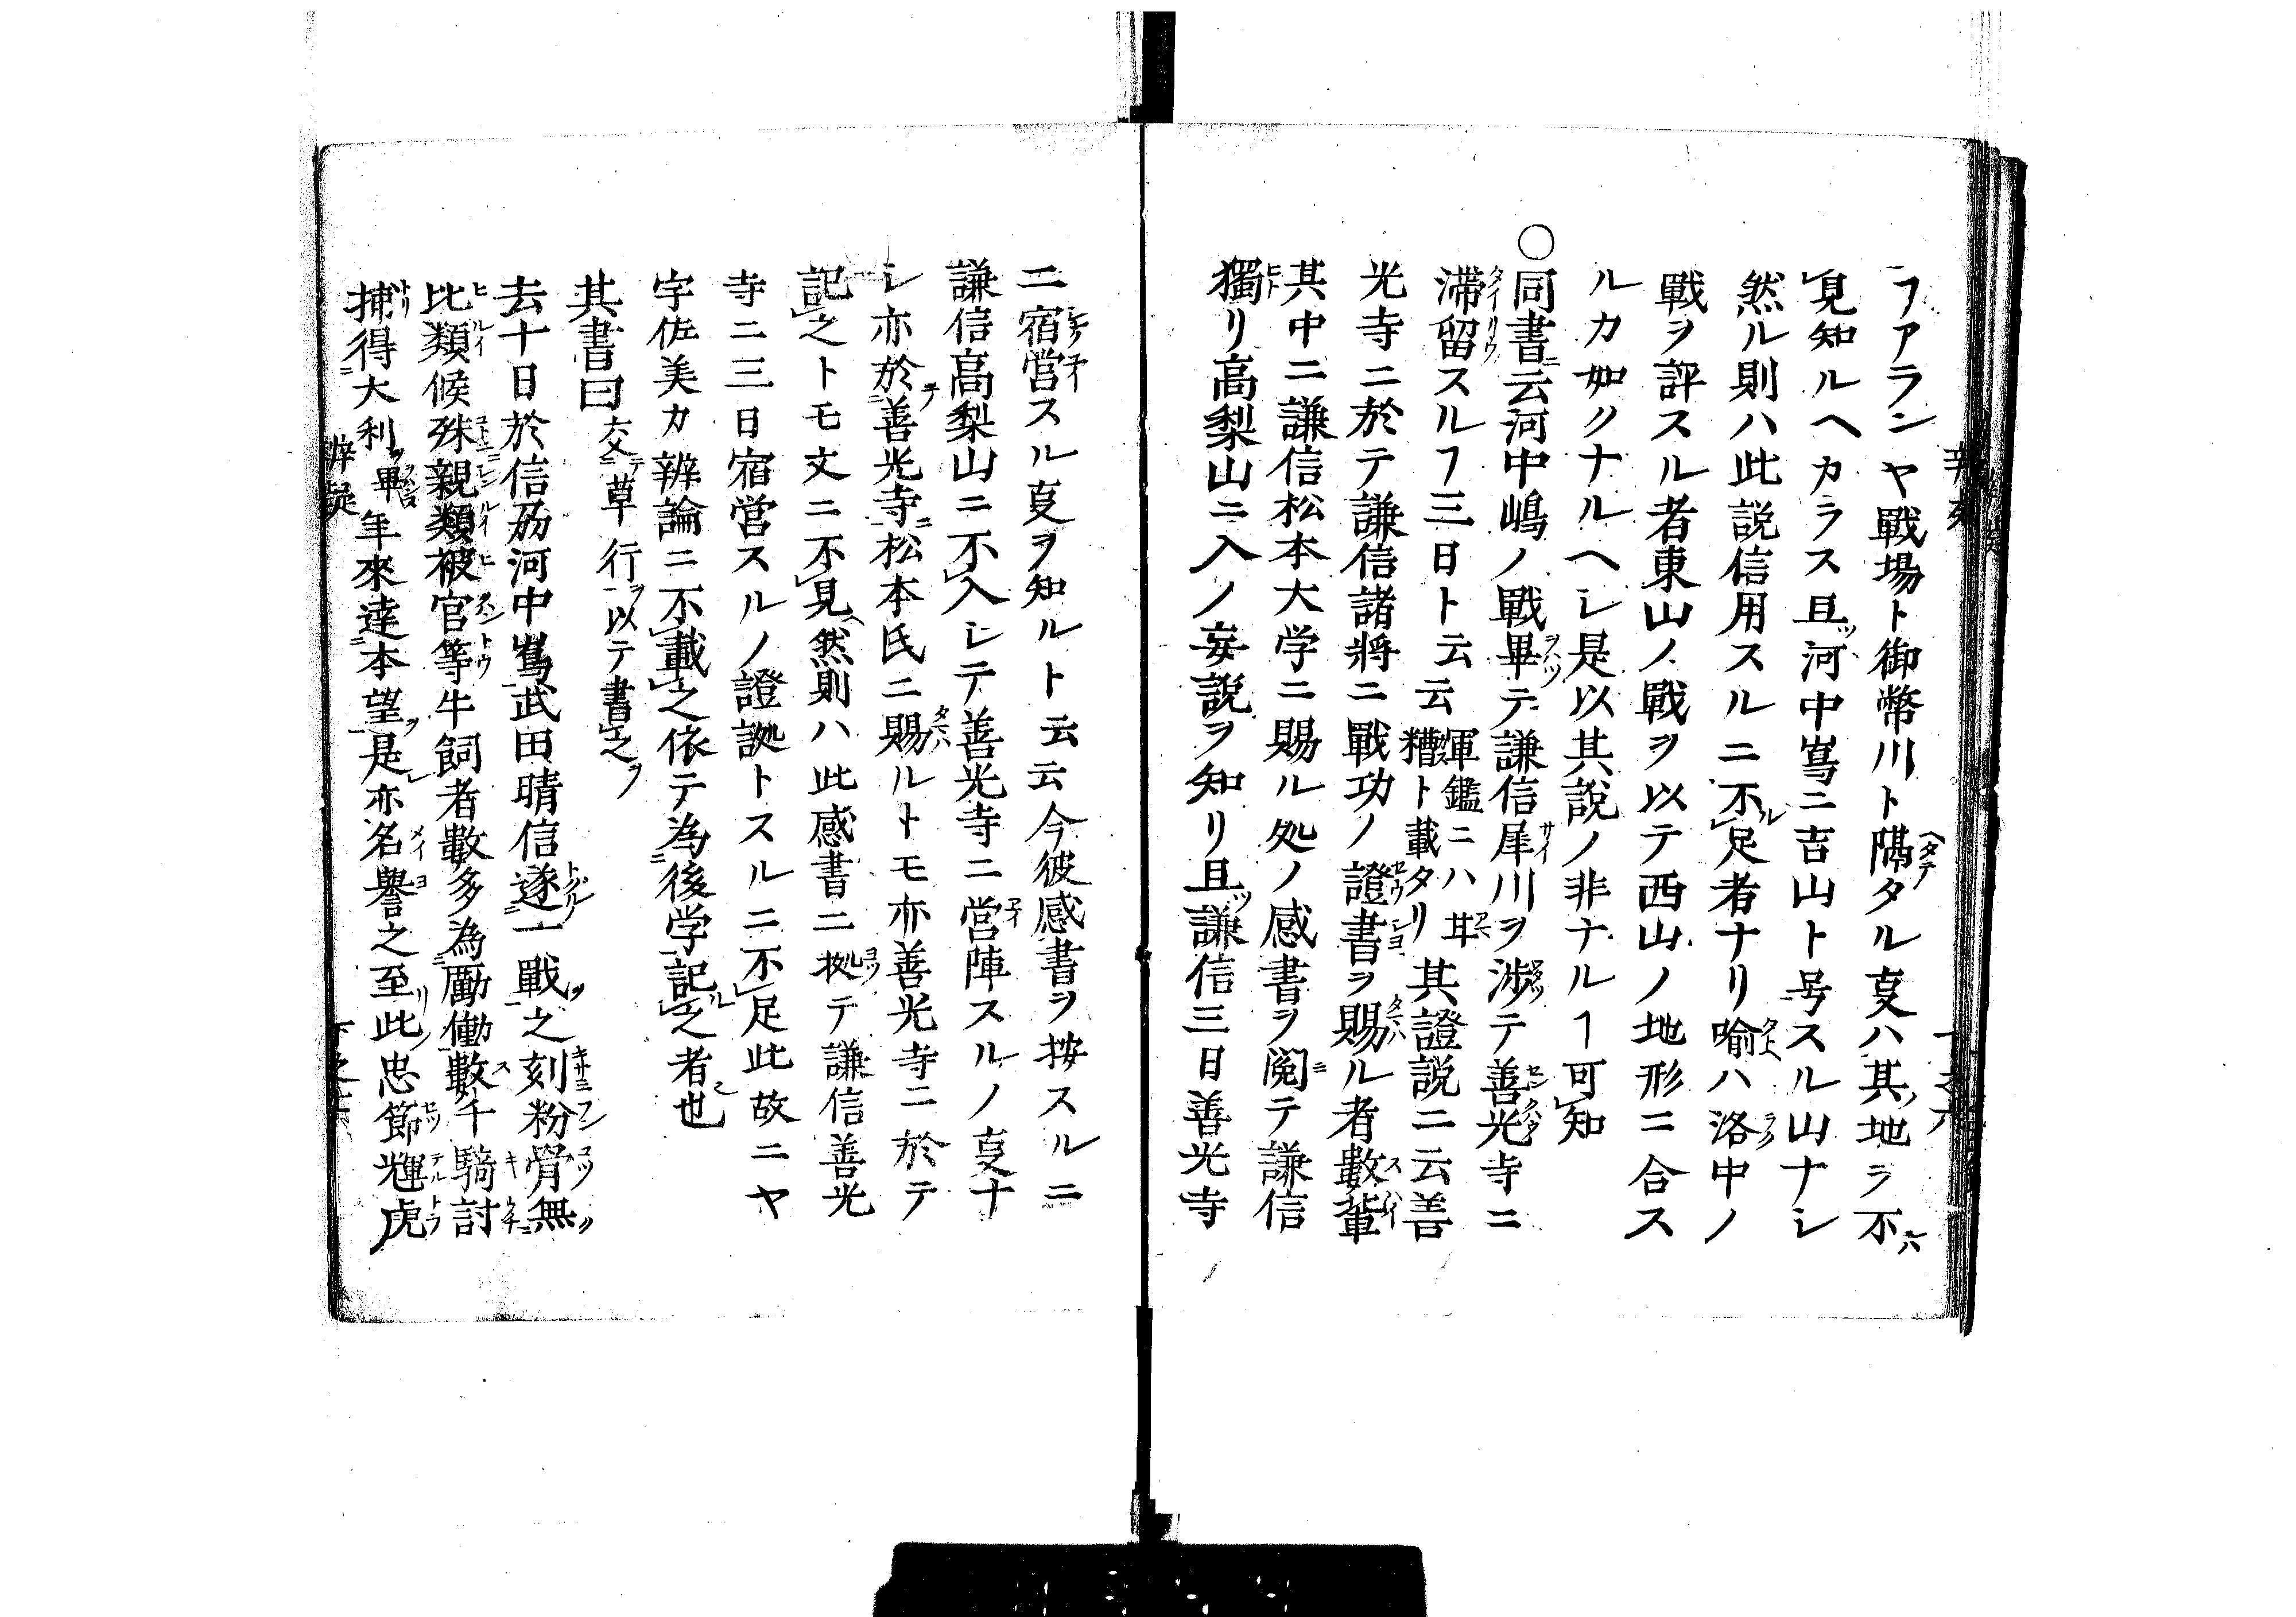 ヿアランヤ戰場ト御幣川ト隔タル叓ハ其地ヲ不
見知ルヘカラス且河中嶌ニ吉山ト号スル山ナシ
然ル則ハ此説信用スルニ不足者ナリ喻ハ洛中ノ
戰ヲ評スル者東山ノ戰ヲ以テ西山ノ地形ニ合ス
ルカ如クナルヘシ是以其説ノ非ナルヿ可知
○同書云河中嶋ノ戰畢テ謙信犀川ヲ渉テ善光寺ニ
滞留スルヿ三日ト云云軍鑑ニハ甘糟ト載タリ其證説ニ云善
光寺ニ於テ謙信諸將ニ戰功ノ證書ヲ賜ル者數輩
其中ニ謙信松本大学ニ賜ル処ノ感書ヲ閲テ謙信
獨リ高梨山ニ入ノ妄説ヲ知リ且謙信三日善光寺
ニ宿営スル叓ヲ知ルト云云今彼感書ヲ按スルニ
謙信高梨山ニ不入シテ善光寺ニ営陣スルノ叓ナ
シ亦於善光寺松本氏ニ賜ルトモ亦善光寺ニ於テ
記之トモ文ニ不見然則ハ此感書ニ拠テ謙信善光
寺ニ三日宿営スルノ證拠トスルニ不足此故ニヤ
宇佐美カ辨論ニ不載之依テ為後学記之者也
其書曰交草行以テ書之
去十日於信刕河中嶌武田晴信遂一戰之刻粉骨無
比類候殊親類被官等牛飼者數多為勵働數千騎討
捕得大利畢年來達本望是亦名譽之至此忠節輝虎
辨疑